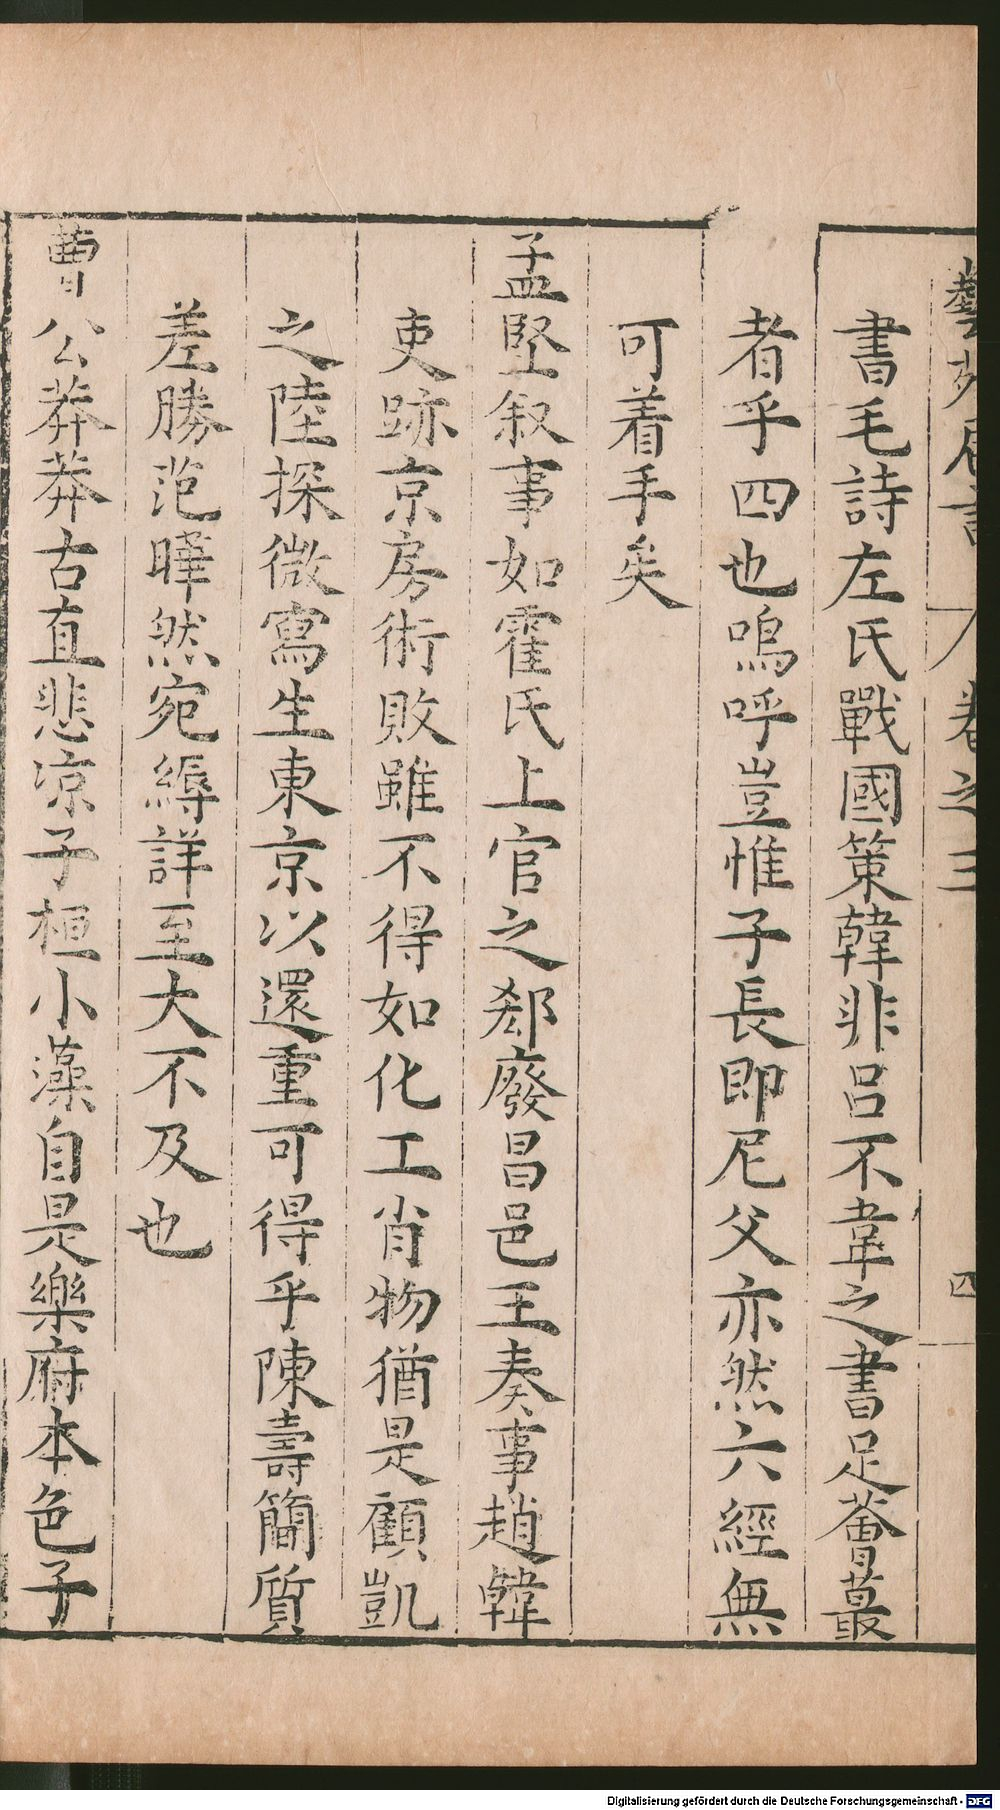 藝苑卮言 卷之三 四
書毛詩左氏戰國策韓非呂不韋之書足薈蕞
者乎四也嗚呼豈惟子長即尼父亦然六經無
可着手矣
孟堅叙事如霍氏上官之郄廢昌邑王奏事趙韓
吏跡京房術敗雖不得如化工肖物猶是顧凱
之陸探微寫生東京以還重可得乎陳壽簡質
差勝范曄然宛縟詳至大不及也
曹公莽莽古直悲凉子桓小藻自是樂府本色子
Digitalisierung gefördert durch die Deutsche Forschungsgemeinschaft - DFG